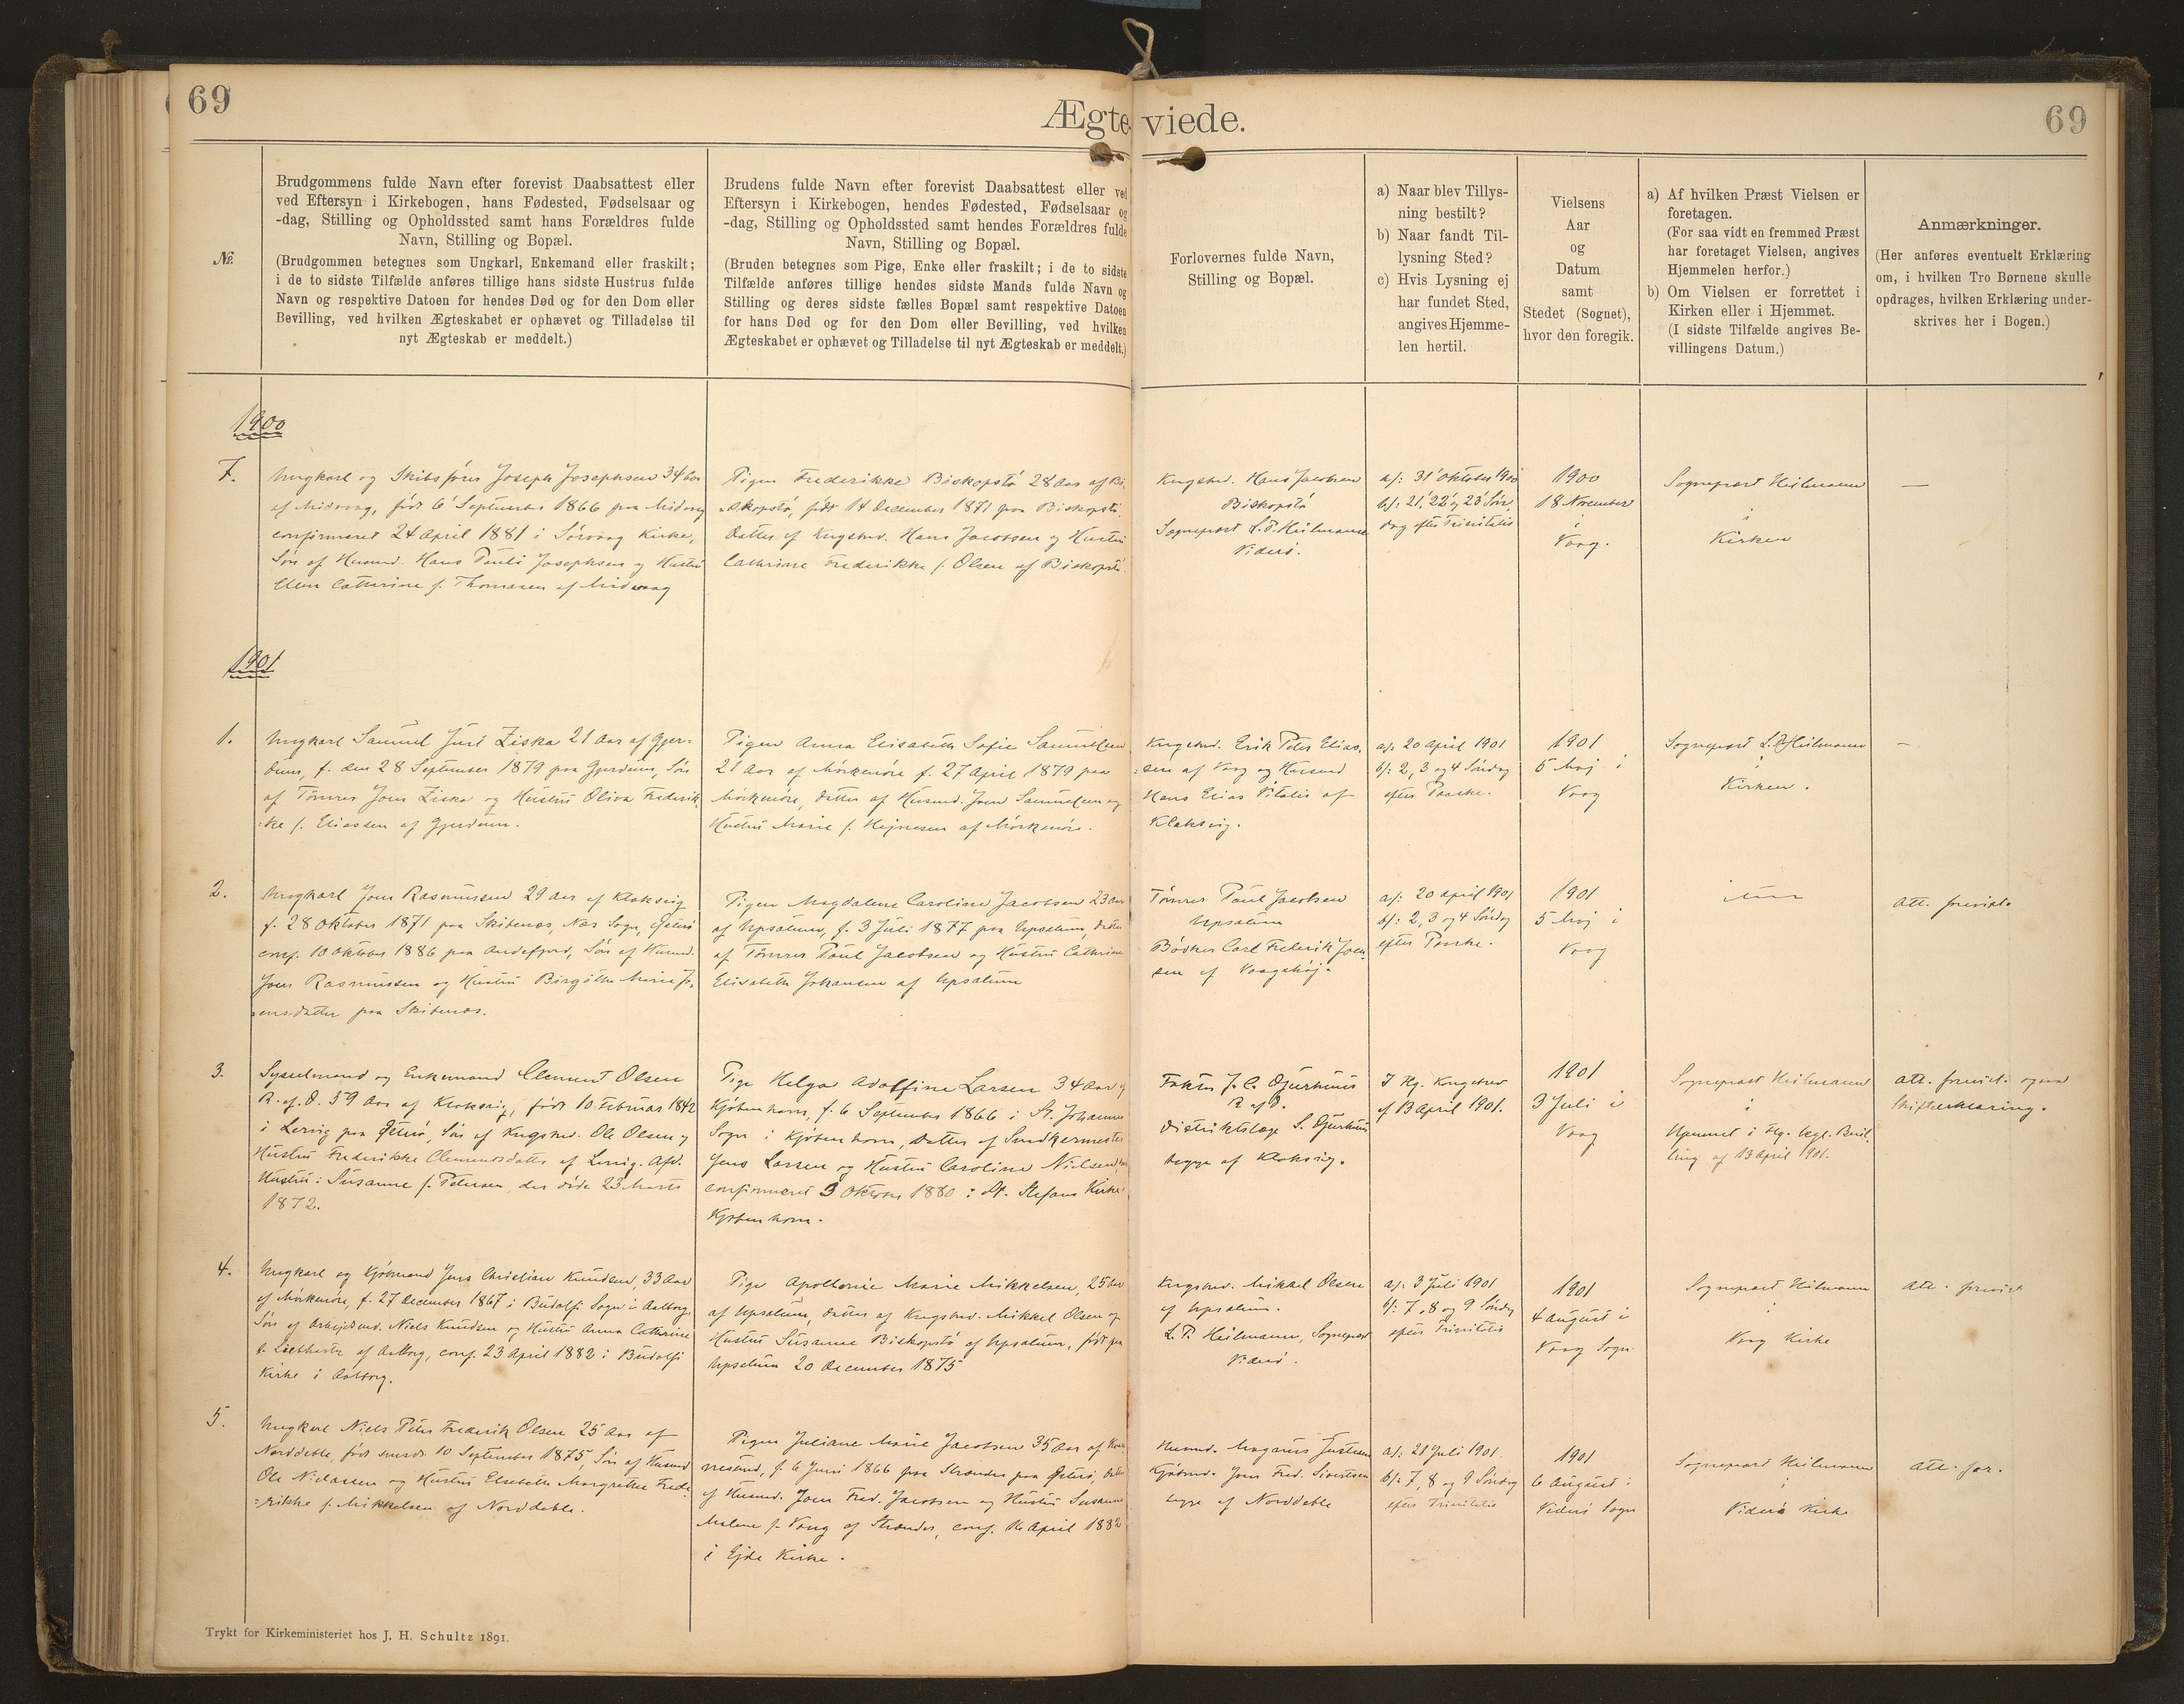 69
Ægteviede.
69
№
Brudgommens fulde Navn efter forevist Daabsattest eller
ved Eftersyn i Kirkebogen, hans Fødested, Fødselsaar og
-dag, Stilling og Opholdssted samt hans Forældres fulde
Navn, Stilling og Bopæl.
(Brudgommen betegnes som Ungkarl, Enkemand eller fraskilt;
i de to sidste Tilfælde anføres tillige hans sidste Hustrus fulde
Navn og respektive Datoen for hendes Død og for den Dom eller
Bevilling, ved hvilken Ægteskabet er ophævet og Tilladelse til
nyt Ægteskab er meddelt.)
Brudens fulde Navn efter forevist Daabsattest eller ved
Eftersyn i Kirkebogen, hendes Fødested, Fødselsaar og
-dag, Stilling og Opholdssted samt hendes Forældres fulde
Navn, Stilling og Bopæl.
(Bruden betegnes som Pige, Enke eller fraskilt; i de to sidste
Tilfælde anføres tillige hendes sidste Mands fulde Navn og
Stilling og deres sidste fælles Bopæl samt respektive Datoen
for hans Død og for den Dom eller Bevilling, ved hvilken
Ægteskabet er ophævet og Tilladelse til nyt Ægteskab er meddelt.)
Forlovernes fulde Navn,
Stilling og Bopæl.
a) Naar blev Tillys-
ning bestilt?
b) Naar fandt Til-
lysning Sted?
c) Hvis Lysning ej
har fundet Sted,
angives Hjemme-
len hertil.
Vielsens
Aar
og
Datum
samt
Stedet (Sognet),
hvor den foregik.
a) Af hvilken Præst Vielsen er
foretagen.
(For saa vidt en fremmed Præst
har foretaget Vielsen, angives
Hjemmelen herfor.)
b) Om Vielsen er forrettet i
Kirken eller i Hjemmet.
(I sidste Tilfælde angives Be-
villingens Datum.)
Anmærkninger.
(Her anføres eventuelt Erklæring
om, i hvilken Tro Børnene skulle
opdrages, hvilken Erklæring under-
skrives her i Bogen.)
1900
7.
Ungkarl og Skibsfører Joseph Josephsen 34 Aar
af Midvaag, født 6' September 1866 paa Midvaag
confirmeret 24 April 1881 i Sörvaag Kirke,
Sön af Husmd. Hans Pauli Josephsen og Hustru
Ellen Cathrine f. Thomasen af Midvaag
Pigen Frederikke Biskopstö 28 Aar af Bi-
skopstö, født 14 December 1871 paa Biskopstö.
Datter af Kngsbd. Hans Jacobsen og Hustru
Cathrine Frederikke f. Olsen af Biskopstö.
Kngsbd. Hans Jacobsen
Biskopstö
Sognepræst L. P. Heilmann
Viderö.
a/: 31' Oktober 1900
b/: 21', 22' og 23' Sön-
dag efter Trinitatis
1900
18 November
i
Vaag.
Sognepræst Heilmann
i
Kirken
—
1901
1.
Ungkarl Samuel Juri Ziska 21 Aar af Gjer-
dum, f. den 28 September 1879 paa Gjerdum, Sön
af Tömrer Joen Ziska og Hustru Oliva Frederik-
ke f. Eliassen af Gjerdum.
Pigen Anna Elisabeth Sofie Samuelsen
21 Aar af Mörkenöre f. 27 April 1879 paa
Mörkenöre, Datter af Husmd. Joen Samuelsen og
Hustru Marie f. Hejnesen af Mörkenöre.
Kngsbd. Erik Peter Elias-
sen af Vaag og Husmd
Hans Elias Vitalis af
Klaksvig.
a/: 20 April 1901
b/: 2, 3 og 4 Söndag
efter Paaske.
1901
5 Maj i
Vaag
Sognepræst L. P. Heilmann
i
Kirken.
—
2.
Ungkarl Joen Rasmussen 29 Aar af Klaksvig
f. 28 Oktober 1871 paa Skibenæs, Næs Sogn, Österö
conf. 10 Oktober 1886 paa Andefjord, Sön af Husmd.
Joen Rasmussen og Hustru Birgitte Marie Jo-
ensdatter paa Skibenæs.
Pigen Magdalene Caroline Jacobsen 23 Aar
af Upsalum, f. 3 Juli 1877 paa Upsalum, Datter
af Tömrer Paul Jacobsen og Hustru Cathrine
Elisabeth Johansen af Upsalum
Tömrer Paul Jacobsen
Upsalum
Bödker Carl Frederik Joen-
sen af Vaagshøj.
a/: 20 April 1901
b/: 2, 3 og 4 Söndag
efter Paaske.
1901
5 Maj i
Vaag
Att. forevist
3.
Sysselmand og Enkemand Clement Olsen
R. af D. 59 Aar af Klaksvig, født 10 Februar 1842
i Lervig paa Österö, Sön af Kngsbd. Ole Olsen og
Hustru Frederikke Clemensdatter af Lervig. Afd.
Hustru: Susanne f. Petersen der döde 23 Marts
1872.
Pige Helga Adolfine Larsen 34 Aar af
Kjöbenhavn, f. 6 September 1866 i St. Johannes
Sogn i Kjöbenhavn, Datter af Snedkermester
Jens Larsen og Hustru Caroline Nielsen,
confirmeret 3 Oktober 1880 i St. Stefans Kirke
Kjöbenhavn.
Faktor J. C. Djurhuus
R af D.
Distriktslæge S. Djurhuus
begge af Klaksvig.
af 13 April 1901.
1901
3 Juli i
Vaag
Sognepræst Heilmann
i
Hjemmet i Flg. kgl. Bevil-
ling af 13 April 1901.
Att. forevist ogsaa
Skifteerklæring.
4.
Ungkarl og Kjöbmand Jens Christian Knudsen, 33 Aar
af Mörkenöre, f. 27 December 1867 i Budolfi Sogn i Aalborg.
Sön af Arbejdsmd. Niels Knudsen og Hustru Anna Cathrine
af Aalborg, conf. 23 April 1882 i Budolfi
Kirke i Aalborg.
Pige Apollonie Marie Mikkelsen, 25 Aar
af Upsalum, Datter af Kngsbd. Mikkel Olsen og
Hustru Susanne Biskopstö af Upsalum, født paa
Upsalum 20 December 1875
Kngsbd. Mikkel Olsen
af Upsalum.
L. P. Heilmann, Sognepræst
Viderö.
a/: 3 Juli 1901
b/: 7, 8 og 9 Söndag
efter Trinitatis
1901
4 August i
Vaag Sogn.
Sognepræst Heilmann
i
Vaag Kirke
Att. forevist
5.
Ungkarl Niels Peter Frederik Olsen 25 Aar af
Norddeble, født smsds. 10 September 1875, Sön af Husmd
Ole Niclassen og Hustru Elsebeth Margrethe Frede-
rikke f. Mikkelsen af Norddeble.
Pigen Juliane Marie Jacobsen 35 Aar af
f. 6 Juni 1866 paa Strænder paa Österö, Datter
af Husmd. Joen Fred. Jacobsen og Hustru Susanne
Malene f. Vang af Strænder, conf. 16 April 1882
i Ejde Kirke.
Husmd. Magnus Justesen
Kjöbmd. Joen Fred. Sivertsen
begge af Norddeble
a/: 21 Juli 1901.
b/: 7, 8 og 9 Söndag
efter Trinitatis
1901
6 August i
Viderö Sogn
Sognepræst Heilmann
i
Viderö Kirke
Att. for.
Trykt for Kirkeministeriet hos J. H. Schultz 1891.